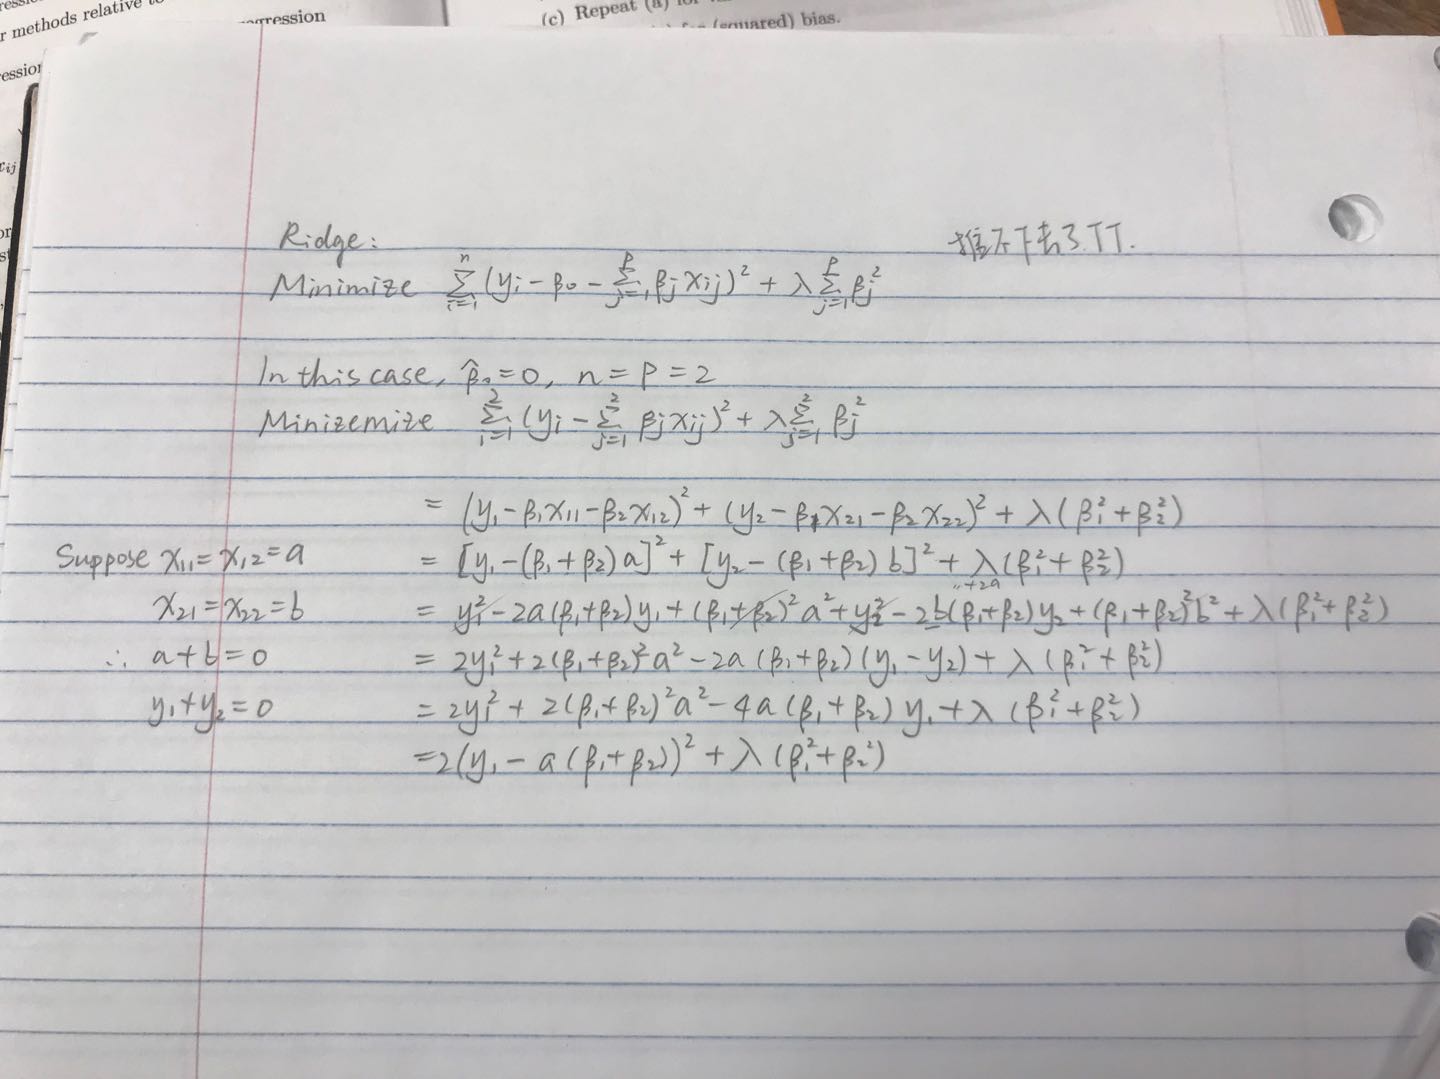 r methods relative to
gression
(c) Repeat (a) for
(squared) bias.
Ridge:
推不下去了TT.
Minimize ∑_{i=1}^{n} (y_i − β_0 − ∑_{j=1}^{p} β_j x_{ij})² + λ ∑_{j=1}^{p} β_j²
In this case, β̂_0 = 0, n = p = 2
Minizemize ∑_{i=1}^{2} (y_i − ∑_{j=1}^{2} β_j x_{ij})² + λ ∑_{j=1}^{2} β_j²
= (y_1 − β_1 x_{11} − β_2 x_{12})² + (y_2 − β_1 x_{21} − β_2 x_{22})² + λ (β_1² + β_2²)
Suppose x_{11} = x_{12} = a = [y_1 − (β_1 + β_2) a]² + [y_2 − (β_1 + β_2) b]² + λ (β_1² + β_2²)
x_{21} = x_{22} = b = y_1² − 2a (β_1 + β_2) y_1 + (β_1 + β_2)² a² + y_2² − 2b (β_1 + β_2) y_2 + (β_1 + β_2)² b² + λ (β_1² + β_2²)
∴ a + b = 0 = 2y_1² + 2(β_1 + β_2)² a² − 2a (β_1 + β_2) (y_1 − y_2) + λ (β_1² + β_2²)
y_1 + y_2 = 0 = 2y_1² + 2(β_1 + β_2)² a² − 4a (β_1 + β_2) y_1 + λ (β_1² + β_2²)
= 2(y_1 − a (β_1 + β_2))² + λ (β_1² + β_2²)